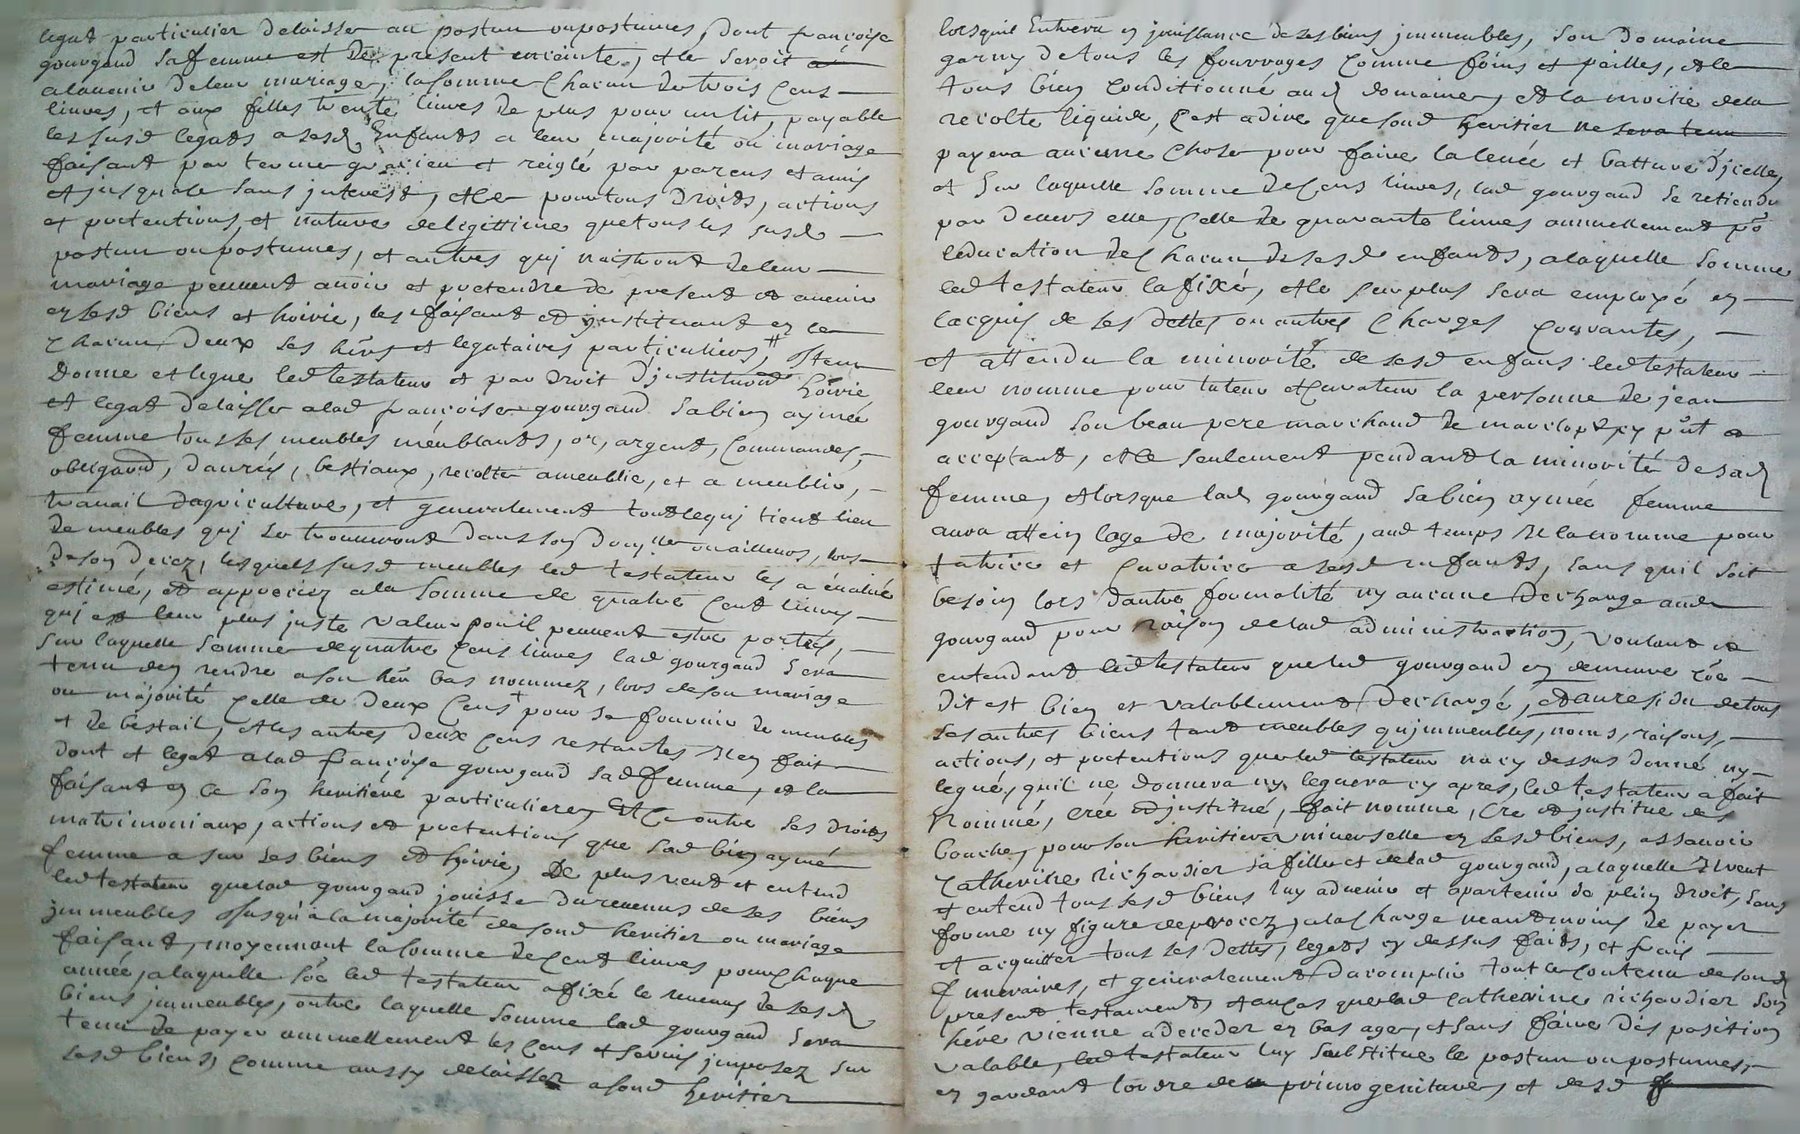 legat particulier delaisse au postum ou postumes, dont françoise
gourgand sa femme est de present enceinte, et le seroit a
alavenir de leur mariage, la somme chacun de trois cens
livres, et aux filles trente livres de plus pour un lit, payable
les susd legats a sesd enfants a leur majorité ou mariage
faisant par terme gracieux et reiglé par parens et amis
et jusquale sans interest, et ce pour tous droits, actions
et pretentions et nature delegittime que tous les susd
postum ou postumes, et autres quj naistront de leur
mariage peuvent avoir et pretendre de present et avenir
en sesd biens et hoirie, les faisant et jnstituant en ce
chacun deux ses hérs et legataires particuliers, # Item
Donne et legue led testateur et par droit djnstitution hoirie
et legat delaisse alad françoise gourgand sa bien aymée
femme tous ses meubles méublants, or, argent, commandes,
obligaons, danrées, bestiaux, recolte ameublie, et a meublir,
travail dagriculture, et generalement tout lequj tient lieu
de meubles quj se trouveront dans son domlle ou ailleurs, lors
de son decez, lesquels susd meubles led testateur les a évalué
estimé, et appreciez ala somme de quatre cent livres
quj est leur plus juste valeur ou il peuvent estre portés,
sur laquelle somme de quatre cens livres lad gourgand sera
tenu den rendre a son hér bas nommez, lors de son mariage
ou majorité celle de deux cens + pour se fournir de meubles
et de bestail, et les autres deux cens restantes Il en fait
dont et legat alad françoise gourgand sad femme, et la
faisant en ce son heritiere particuliere, Et ce outre ses droits
matrimoniaux, actions et pretentions que sad bien aymé
femme a sur ses biens et hoirie, De plus veut et entend
led testateur quelad gourgand jouisse du revenus de ses biens
jmmeubles Jusqu'à la majorité de sond heritier ou mariage
faisant, moyennant la somme de cent livres pour chaque
année, alaquelle soe led testateur a fixé le revenus de sesd
biens jmmeubles, outre laquelle somme lad gourgand sera
tenu de payer annuellement les cens et servis jmposez sur
sesd biens, comme aussy delaisser a sond heritier
lorsquil Entrera en jouissance de ses biens jmmeubles, son domaine
garny de tous les fourrages comme foins et pailles, et le
tous bien conditionné aud domaine, et la moitié de la
recolte liquide, cest a dire que sond heritier ne sera tenu
payera aucune chose pour faire la levée et batture djcelle,
et sur laquelle somme de cens livres, lad gourgand se retiendra
par devers elle, celle de quarante livres annuellement po
leducation de chacun de sesd enfants, alaquelle somme
led testateur la fixé, et le surplus sera employé en
lacquis de ses dettes ou autres charges courantes,
et attendu la minorité de sesd enfans led testateur
leur nomme pour tuteur et curateur la personne de jean
gourgand son beau pere marchand de marclopt cy pnt
acceptant, et ce seulement pendant la minorité de sad
femme, et lorsque lad gourgand sa bien aymée femme
aura attein lage de majorité, aud temps Il la nomme pour
tutrice et curatrice a sesd enfants, sans quil soit
besoin lors dautre formalité ny aucune decharge aud
gourgand pour raison delad administration, voulant et
entendant led testateur queled gourgand en demeure côe
dit est bien et valablement dechargé, et au residu de tous
ses autres biens tant meubles qujmmeubles, noms, raisons,
actions, et pretentions queled testateur na cy dessus donné ny
legué, quil ne donnera ny leguera cy apres, led testateur a fait
Nommé, créé et jnstitué, fait nomme, cre et jnstitue de sa
bouche, pour son heritiere universelle en sesd biens, assavoir
Catherine richardier sa fille et delad gourgand, alaquelle Il veut
et entend tous sesd biens luy advenir et apartenir de plein droit, sans
forme ny figure de procez, ala charge neantmoins de payer
et acquitter tous ses dettes, legats cy dessus faits, et frais
funeraires, et generalement dacomplir tout le contenu de sond
present testament, et au cas quelad catherine richardier son
hére vienne a deceder en bas age, et sans faire disposition
valable, led testateur luy substitue le postum ou postumes,
en gardant lordre de primo geniture, et de sd